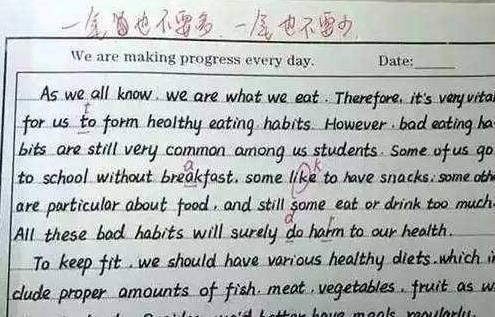 一也不要多 一也不要少
We are making progress every day. Date:
As we all know, we are what we eat. Therefore, it's very vital
t
for us to form healthy eating habits. However, bad eating ha-
bits are still very common among us students. Some of us go
a k
to school without breakfast, some like to have snacks, some oth
are particular about food, and still some eat or drink too much.
d r
All these bad habits will surely do harm to our health.
To keep fit, we should have various healthy diets, which in
clude proper amounts of fish, meat, vegetables, fruit as w
better have meals regularly.